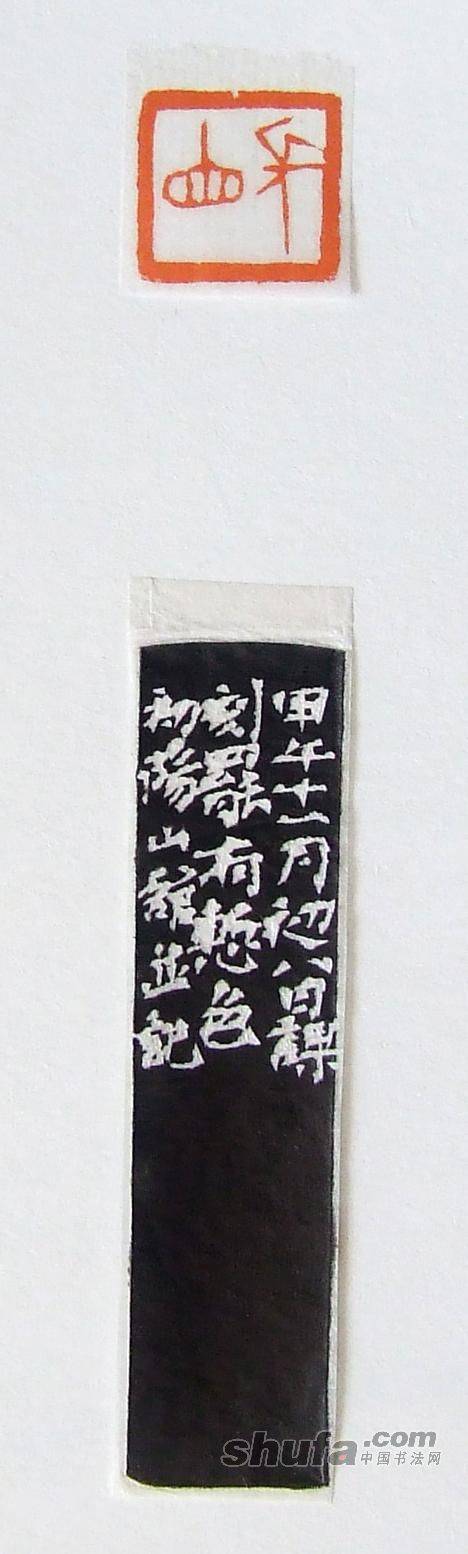 甲午十一月初八日課
刻罷有慙色
初陽山館並記
shufa.com
中国书法网